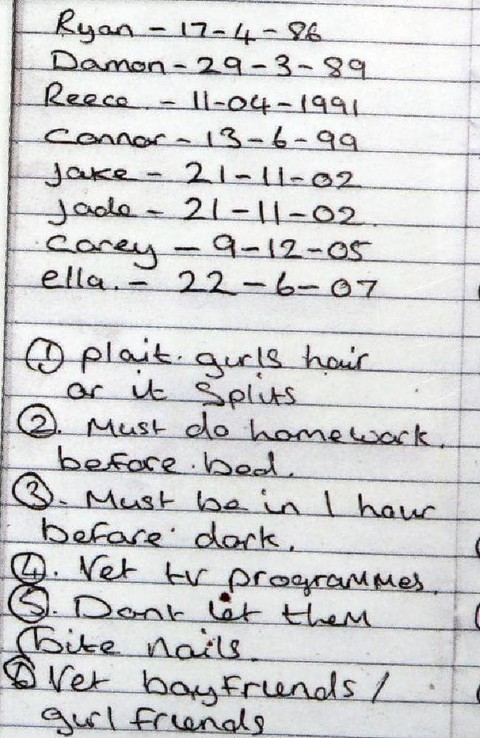 Ryan - 17-4-86
Damon - 29-3-89
Reece - 11-04-1991
Connor - 13-6-99
Jake - 21-11-02
Jade - 21-11-02
Corey - 9-12-05
ella. - 22-6-07
① plait. gurls hair
or it splits
②. Must do homework.
before. bed.
③. Must be in 1 hour
before dark.
④. Vet tv programmes.
⑤. Dont let them
bite nails.
⑥ Vet boyfriends /
gurl friends